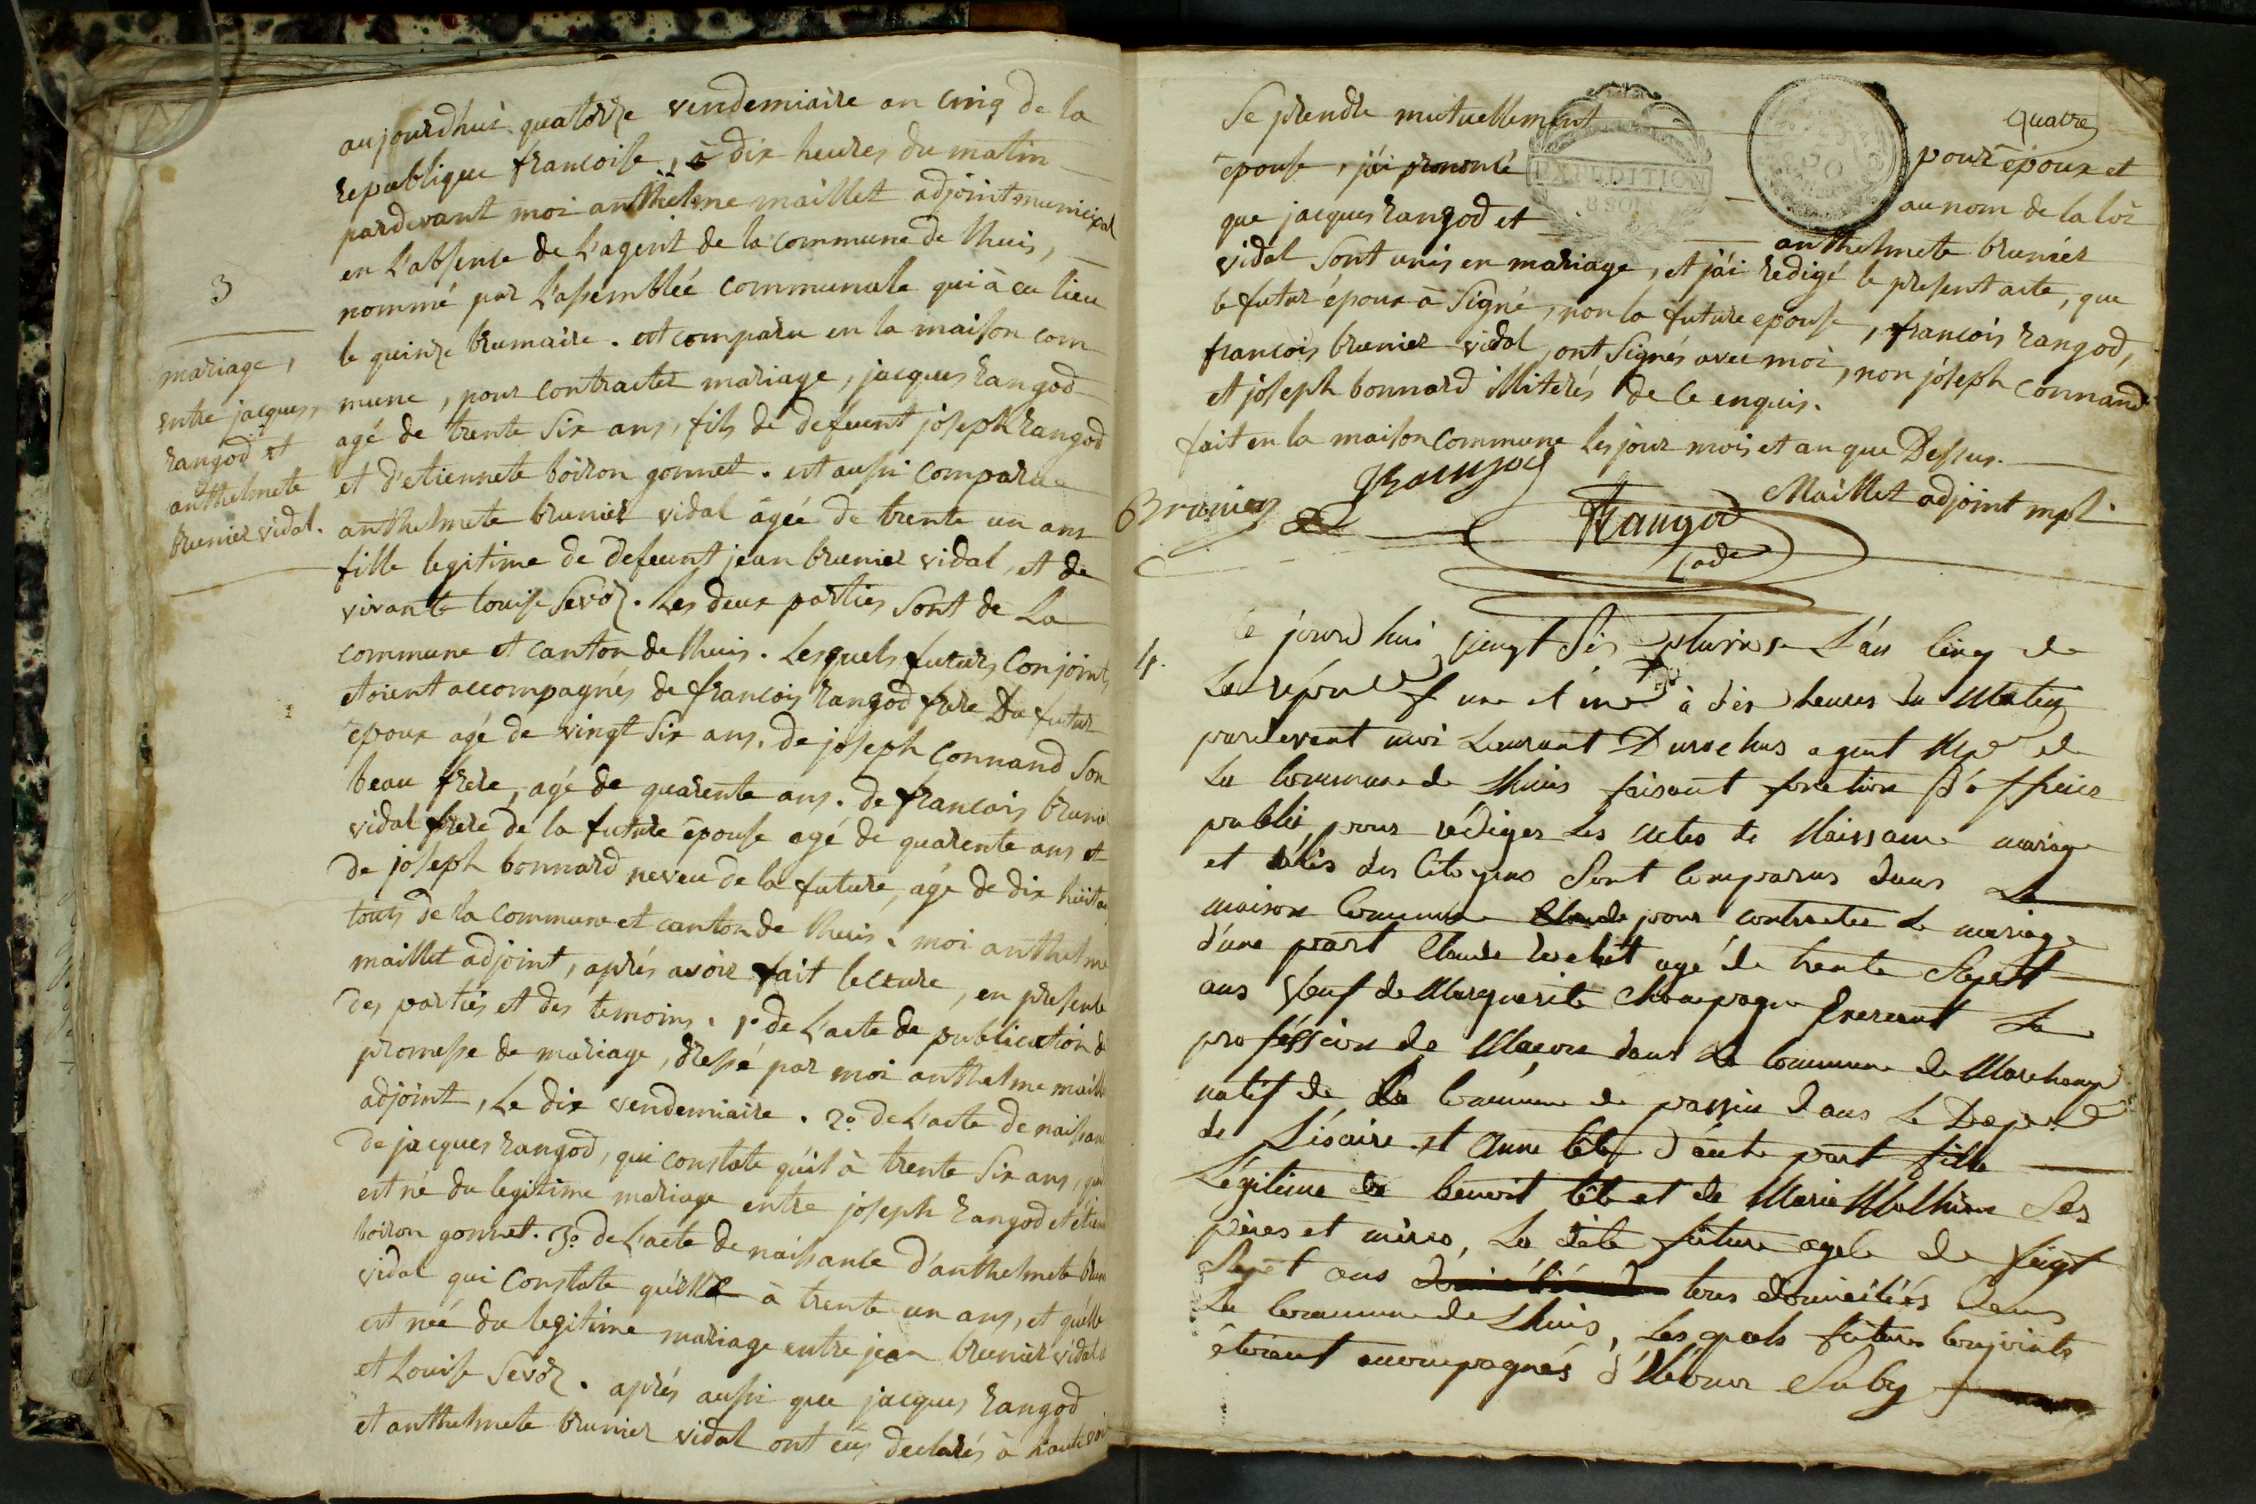 3
mariage,
entre jacques,
rangod et
anthelmete
brunier vidal.
aujourdhui quatorze vendemiaire an cinq de la
republique francoise, à dix heures du matin
pardevant moi anthelme maillet adjoint municipal
en l'absence de l'agent de la commune de lhuis,
nommé par l'assemblée communale qui à eu lieu
le quinze brumaire. est comparu en la maison com
mune, pour contracter mariage, jacques rangod
agé de trente six ans, fils de defeunt joseph rangod
et d'etiennete boiron gonnet. est aussi comparue
anthelmete brunier vidal âgée de trente un ans
fille legitime de defeunt jean brunier vidal, et de
vivante louise sevoz. les deux parties sont de la
commune et canton de lhuis. lesquels futurs conjoints
etoient accompagnés de francois rangod frere du futur
epoux agé de vingt six ans, de joseph connand son
beau frere, agé de quarente ans. de francois brunier
vidal frere de la future épouse agé de quarente ans et
de joseph bonnard neveu de la future, agé de dix huit ans
touts de la commune et canton de lhuis. moi anthelme
maillet adjoint, aprés avoir fait lecture, en presente
des parties et des temoins. 1º de l'acte de publication de
promesse de mariage, dressé par moi anthelme maillet
adjoint, le dix vendemiaire. 2º de l'acte de naissan
de jacques rangod, qui constate qu'il à trente six ans, qu'il
est né du legitime mariage entre joseph rangod et etien
boiron gonnet. 3º de l'acte de naissance d'anthelmete brun
vidal qui constate qu'elle à trente un ans, et qu'elle
est née du legitime mariage entre jean brunier vidal
et louise sevoz. aprés aussi que jacques rangod
et anthelmete brunier vidal ont eus declarés à haute voix
quatre
EXPEDITION
8 SOLS
50
se prendre mutuellement pour époux et
epouse, j'ai prononcé au nom de la loi
que jacques rangod et anthelmete brunier
vidal sont unis en mariage, et j'ai redigé le present acte, que
le futur époux à signé, non la future epouse, francois rangod,
francois brunier vidal, ont signés avec moi, non joseph connand
et joseph bonnard illiterés de ce enquis.
fait en la maison commune les jour mois et an que dessus.
Brunier
JRangod
FRangod
Maillet adjoint mpl.
4.
Ce jourdhui vingt sis pluviose l'an cinq de
La républ une et in à dix heures du Matin
pardevant moi Laurant Durochas agent Mpl de
La Commune de Lhuis faisant fonction d'officier
public pour rédiger les actes de Naissance mariage
et décès des Citoyens Sont Comparus dans La
maison Commune pour contracter le mariage
d'une part Claude Rochet agé de trente Sept
ans Veuf de Marguerite Champagne Exercant La
proféssion de Macon dans la Commune de Marchamp
natif de la Commune de passin dans Le Dep.
de L'isaire et Anne tête d'autre part fille
Légitime de benoit tête et de Marie Mathieu Ses
pères et mères, La dite future agée de Veigt
Sept ans tous domiciliés dans
La Commune de Lhuis, Lesquels futurs conjoints
étoient accompagnés d' Suby